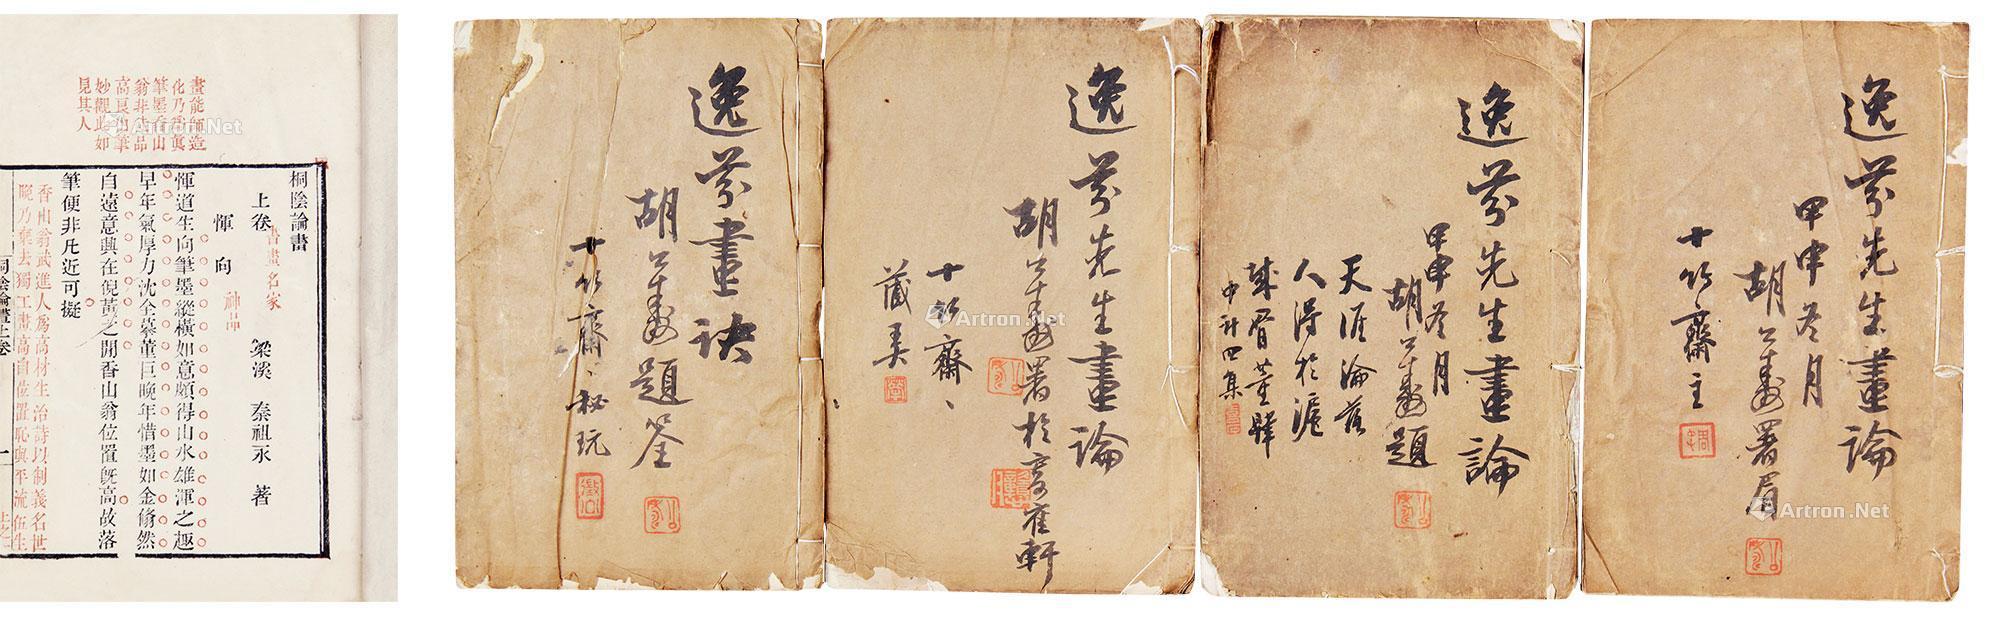 畫能師造
化乃為真
筆墨香山
翁非法品
高良由筆
妙觀此如
見其人
桐陰論畫
上卷 書畫名家 梁溪 秦祖永 著
惲向 神品
惲道生向筆墨縱橫如意頗得山水雄渾之趣
早年氣厚力沈全摹董巨晚年惜墨如金翛然
自遠意興在倪黃之間香山翁位置既高故落
筆便非凡近可擬
香山翁武進人為高材生治詩以制義名世
晚乃棄去獨工畫高自位置恥與平流伍生
桐陰論畫上卷 一
逸芬先生畫論
甲申冬月
胡公壽署眉
十竹齋主
逸芬先生畫論
甲申冬月
胡公壽題
天涯淪落
人得於滬
城胥董肆
中計四集
逸芬先生畫論
胡公壽署於寄雀軒
十竹齋、
藏弆
逸芬畫訣
胡公壽題簽
十竹齋、秘玩
Artron.Net
Artron.Net
Artron.Net